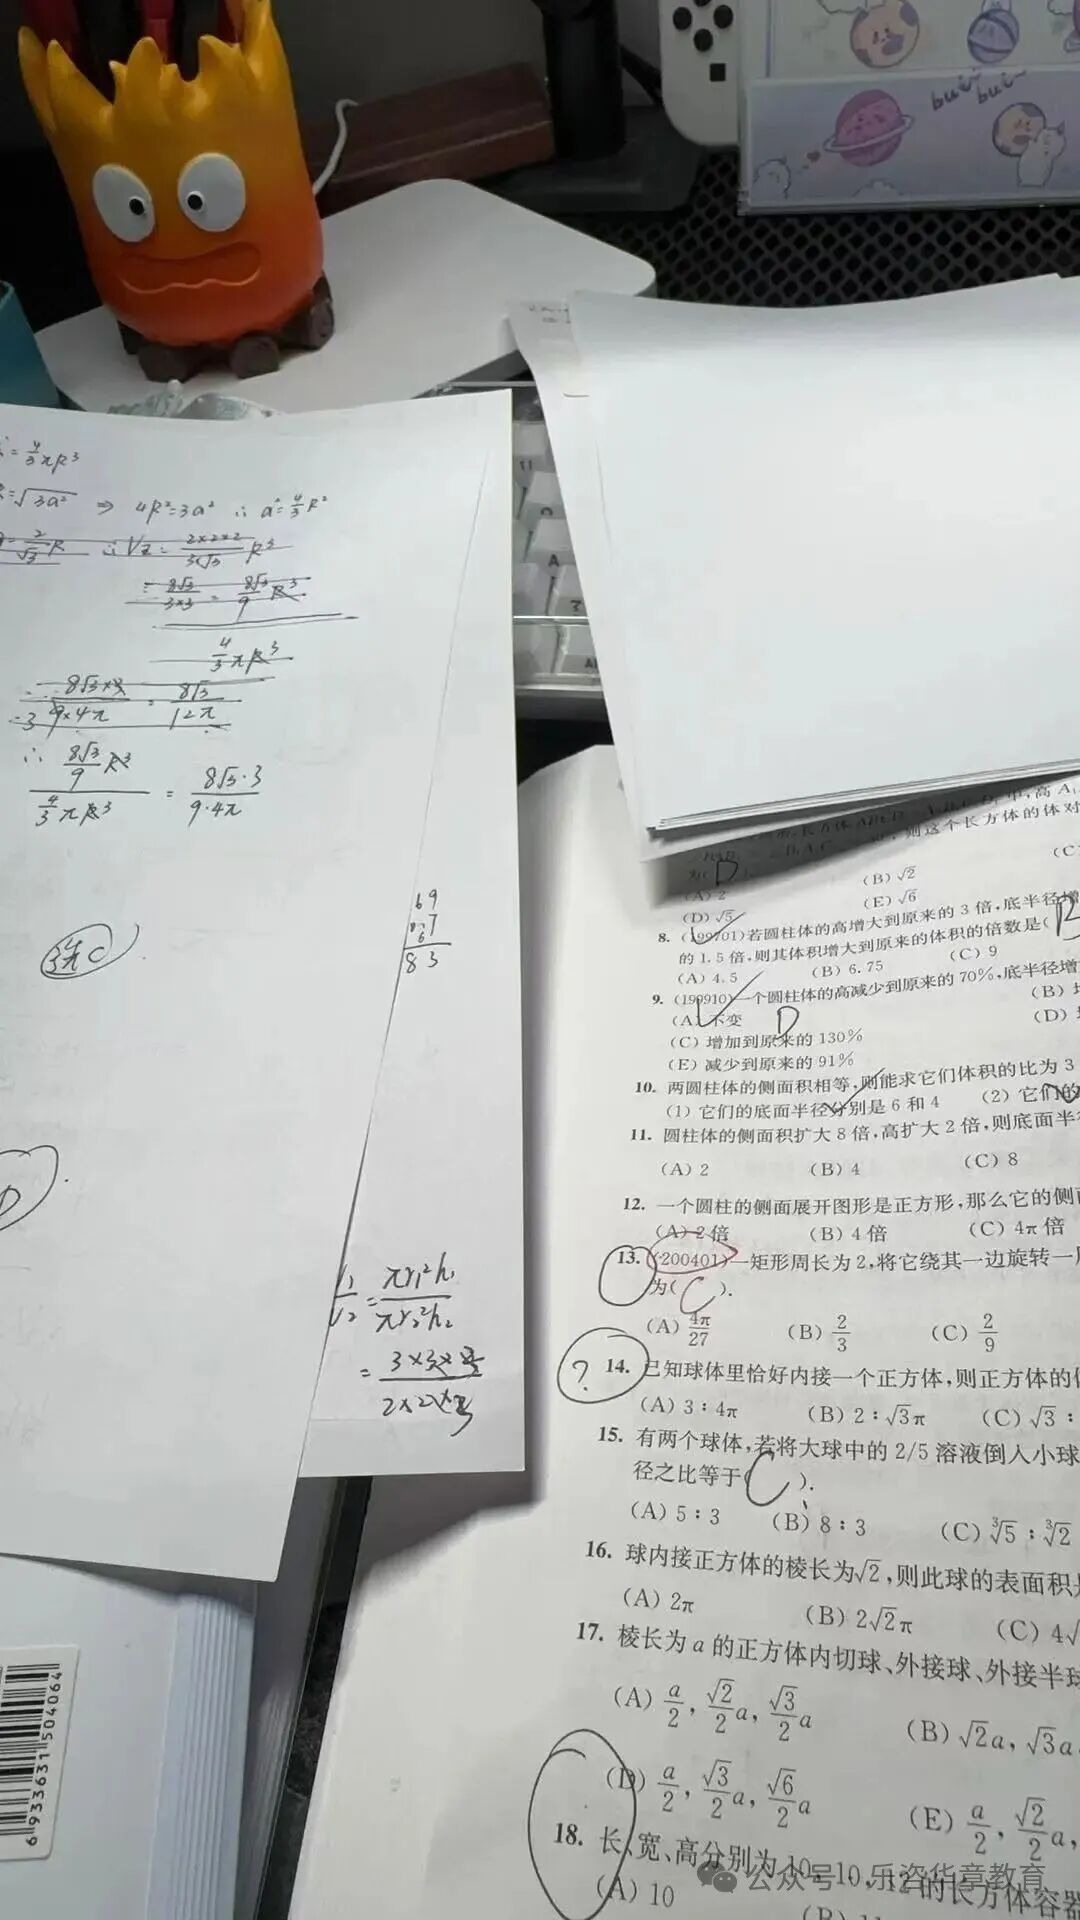 bui~
bui~
= 4/3 πR³
= √3a² ⇒ 4R²=3a² ∴ a²= 4/3 R²
2/√3 R ∴ V正= 2×2×2/3√3 R³
= 8√3/3×3 = 8√3/9 R³
4/3 πR³
= 8√3×3/9×4π = 8√3/12π
∴ 8√3/9 R³ / 4/3 πR³ = 8√3·3/9·4π
选C
69
67
83
D
V₁/V₂ = πr₁²h₁/πr₂²h₂
= 3×3×2/2×2×3
6933631504064
为( D
(A) 2 (B) √2 (C)
(D) √5 (E) √6
8. (199701)若圆柱体的高增大到原来的 3 倍,底半径增
的 1.5 倍,则其体积增大到原来的体积的倍数是( B
(A) 4.5 (B) 6.75 (C) 9
9. (199910)一个圆柱体的高减少到原来的 70%,底半径增
(A) 不变 D (B)
(C) 增加到原来的 130% (D)
(E) 减少到原来的 91%
10. 两圆柱体的侧面积相等,则能求它们体积的比为 3
(1) 它们的底面半径分别是 6 和 4 (2) 它们的
11. 圆柱体的侧面积扩大 8 倍,高扩大 2 倍,则底面半
(A) 2 (B) 4 (C) 8
12. 一个圆柱的侧面展开图形是正方形,那么它的侧
(A) 2倍 (B) 4 倍 (C) 4π 倍
13. (200401)一矩形周长为 2,将它绕其一边旋转一
为( C ).
(A) 4π/27 (B) 2/3 (C) 2/9
? 14. 已知球体里恰好内接一个正方体,则正方体的
(A) 3:4π (B) 2:√3π (C) √3:
15. 有两个球体,若将大球中的 2/5 溶液倒入小球
径之比等于( C ).
(A) 5:3 (B) 8:3 (C) ³√5:³√2
16. 球内接正方体的棱长为√2,则此球的表面积
(A) 2π (B) 2√2π (C) 4√
17. 棱长为 a 的正方体内切球、外接球、外接半球
(A) a/2, √2/2 a, √3/2 a (B) √2a, √3a
(D) a/2, √3/2 a, √6/2 a (E) a/2, √2/2 a,
18. 长、宽、高分别为 10, 10, 12 的长方体容器
(A) 10 (B)
公众号·乐咨华章教育